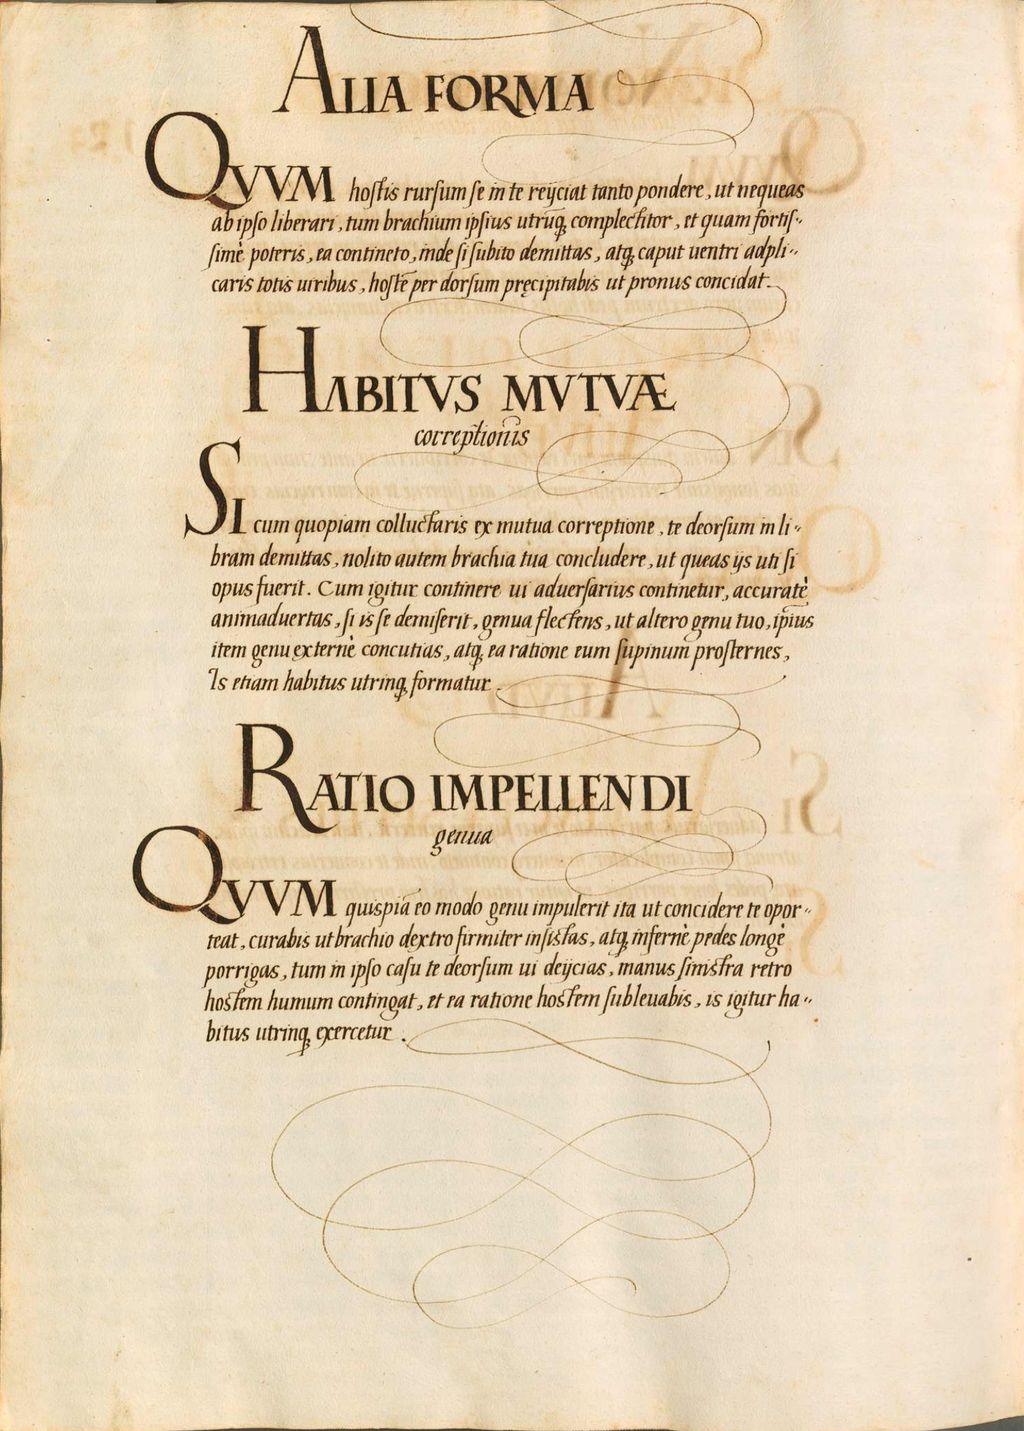 ALIA FORMA
QVVM hoſtis rurſum ſe in te reijciat tanto pondere, ut nequeas
ab ipſo liberari, tum brachium ipſius utrūq; complectitor, et quam fortiſ-
ſimè poteris, ea contineto, inde ſi ſubito demittas, atq; caput uentri adpli-
caris totis uiribus, hoſtē per dorſum pręcipitabis ut pronus concidat.
HABITVS MVTVÆ
correptionis
SI cum quopiam colluctaris ex mutua correptione, te deorſum in li-
bram demittas, nolito autem brachia tua concludere, ut queas ijs uti ſi
opus fuerit. Cum igitur continere ui aduerſarius continetur, accuratè
animaduertas, ſi is ſe demiſerit, genua flectens, ut altero genu tuo, ip̄ius
item genu externè concutias, atq; ea ratione eum ſupinum proſternes,
Is etiam habitus utrinq; formatur.
RATIO IMPELLENDI
genua
QVVM quispiā eo modo genu impulerit ita ut concidere te opor-
teat, curabis ut brachio dextro firmiter inſiſtas, atq; infernè pedes longè
porrigas, tum in ipſo caſu te deorſum ui deijcias, manus ſiniſtra retro
hoſtem humum contingat, et ea ratione hoſtem ſubleuabis, is igitur ha-
bitus utrinq; exercetur.